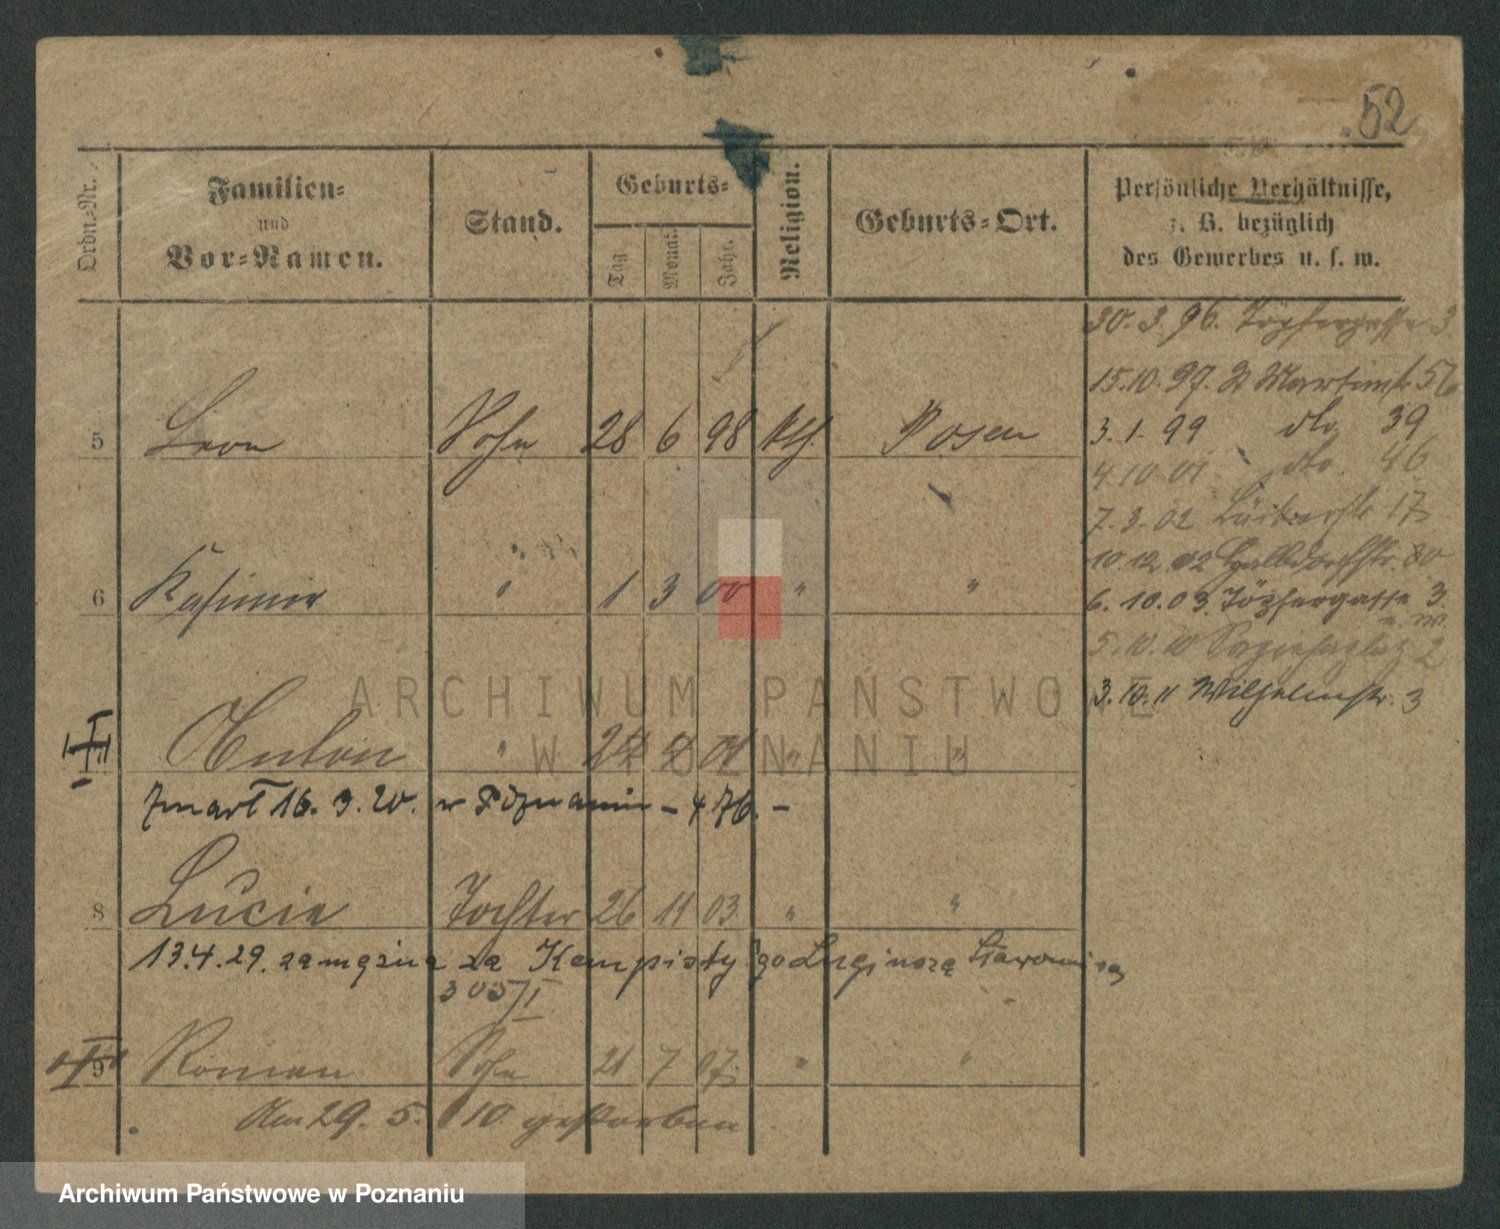 52
Ordn.-Nr.
Familien-
und
Vor-Namen.
Stand.
Geburts-
Tag
Monat
Jahr.
Religion.
Geburts-Ort.
Persönliche Verhältnisse,
z. B. bezüglich
des Gewerbes u. s. w.
30. 3. 96. Töpfergasse 3.
15.10. 97. St Martinstr 56
5 Leon Sohn 28 6 98 kth. Posen
3. 1. 99 dto. 39
4. 10 01 dto. 46
7. 3. 02 17
10. 12. 02 Halbdorfstr.
6 Kasimir " 1 3 00 " "
6. 10. 03. Töpfergasse 3.
5. 10. 10 2
3. 10. 11 Wilhelmstr. 3
ARCHIWUM PAŃSTWOWE
W POZNANIU
Anton " 01 " "
zmarł 16. 3. 20. w Poznaniu – 476. –
8 Lucie Tochter 26 11 03 " "
13.4.29. zamężna za Kempisty
305/I
9 Roman Sohn 21 7 07 " "
Am 29. 5. 10 gestorben
Archiwum Państwowe w Poznaniu